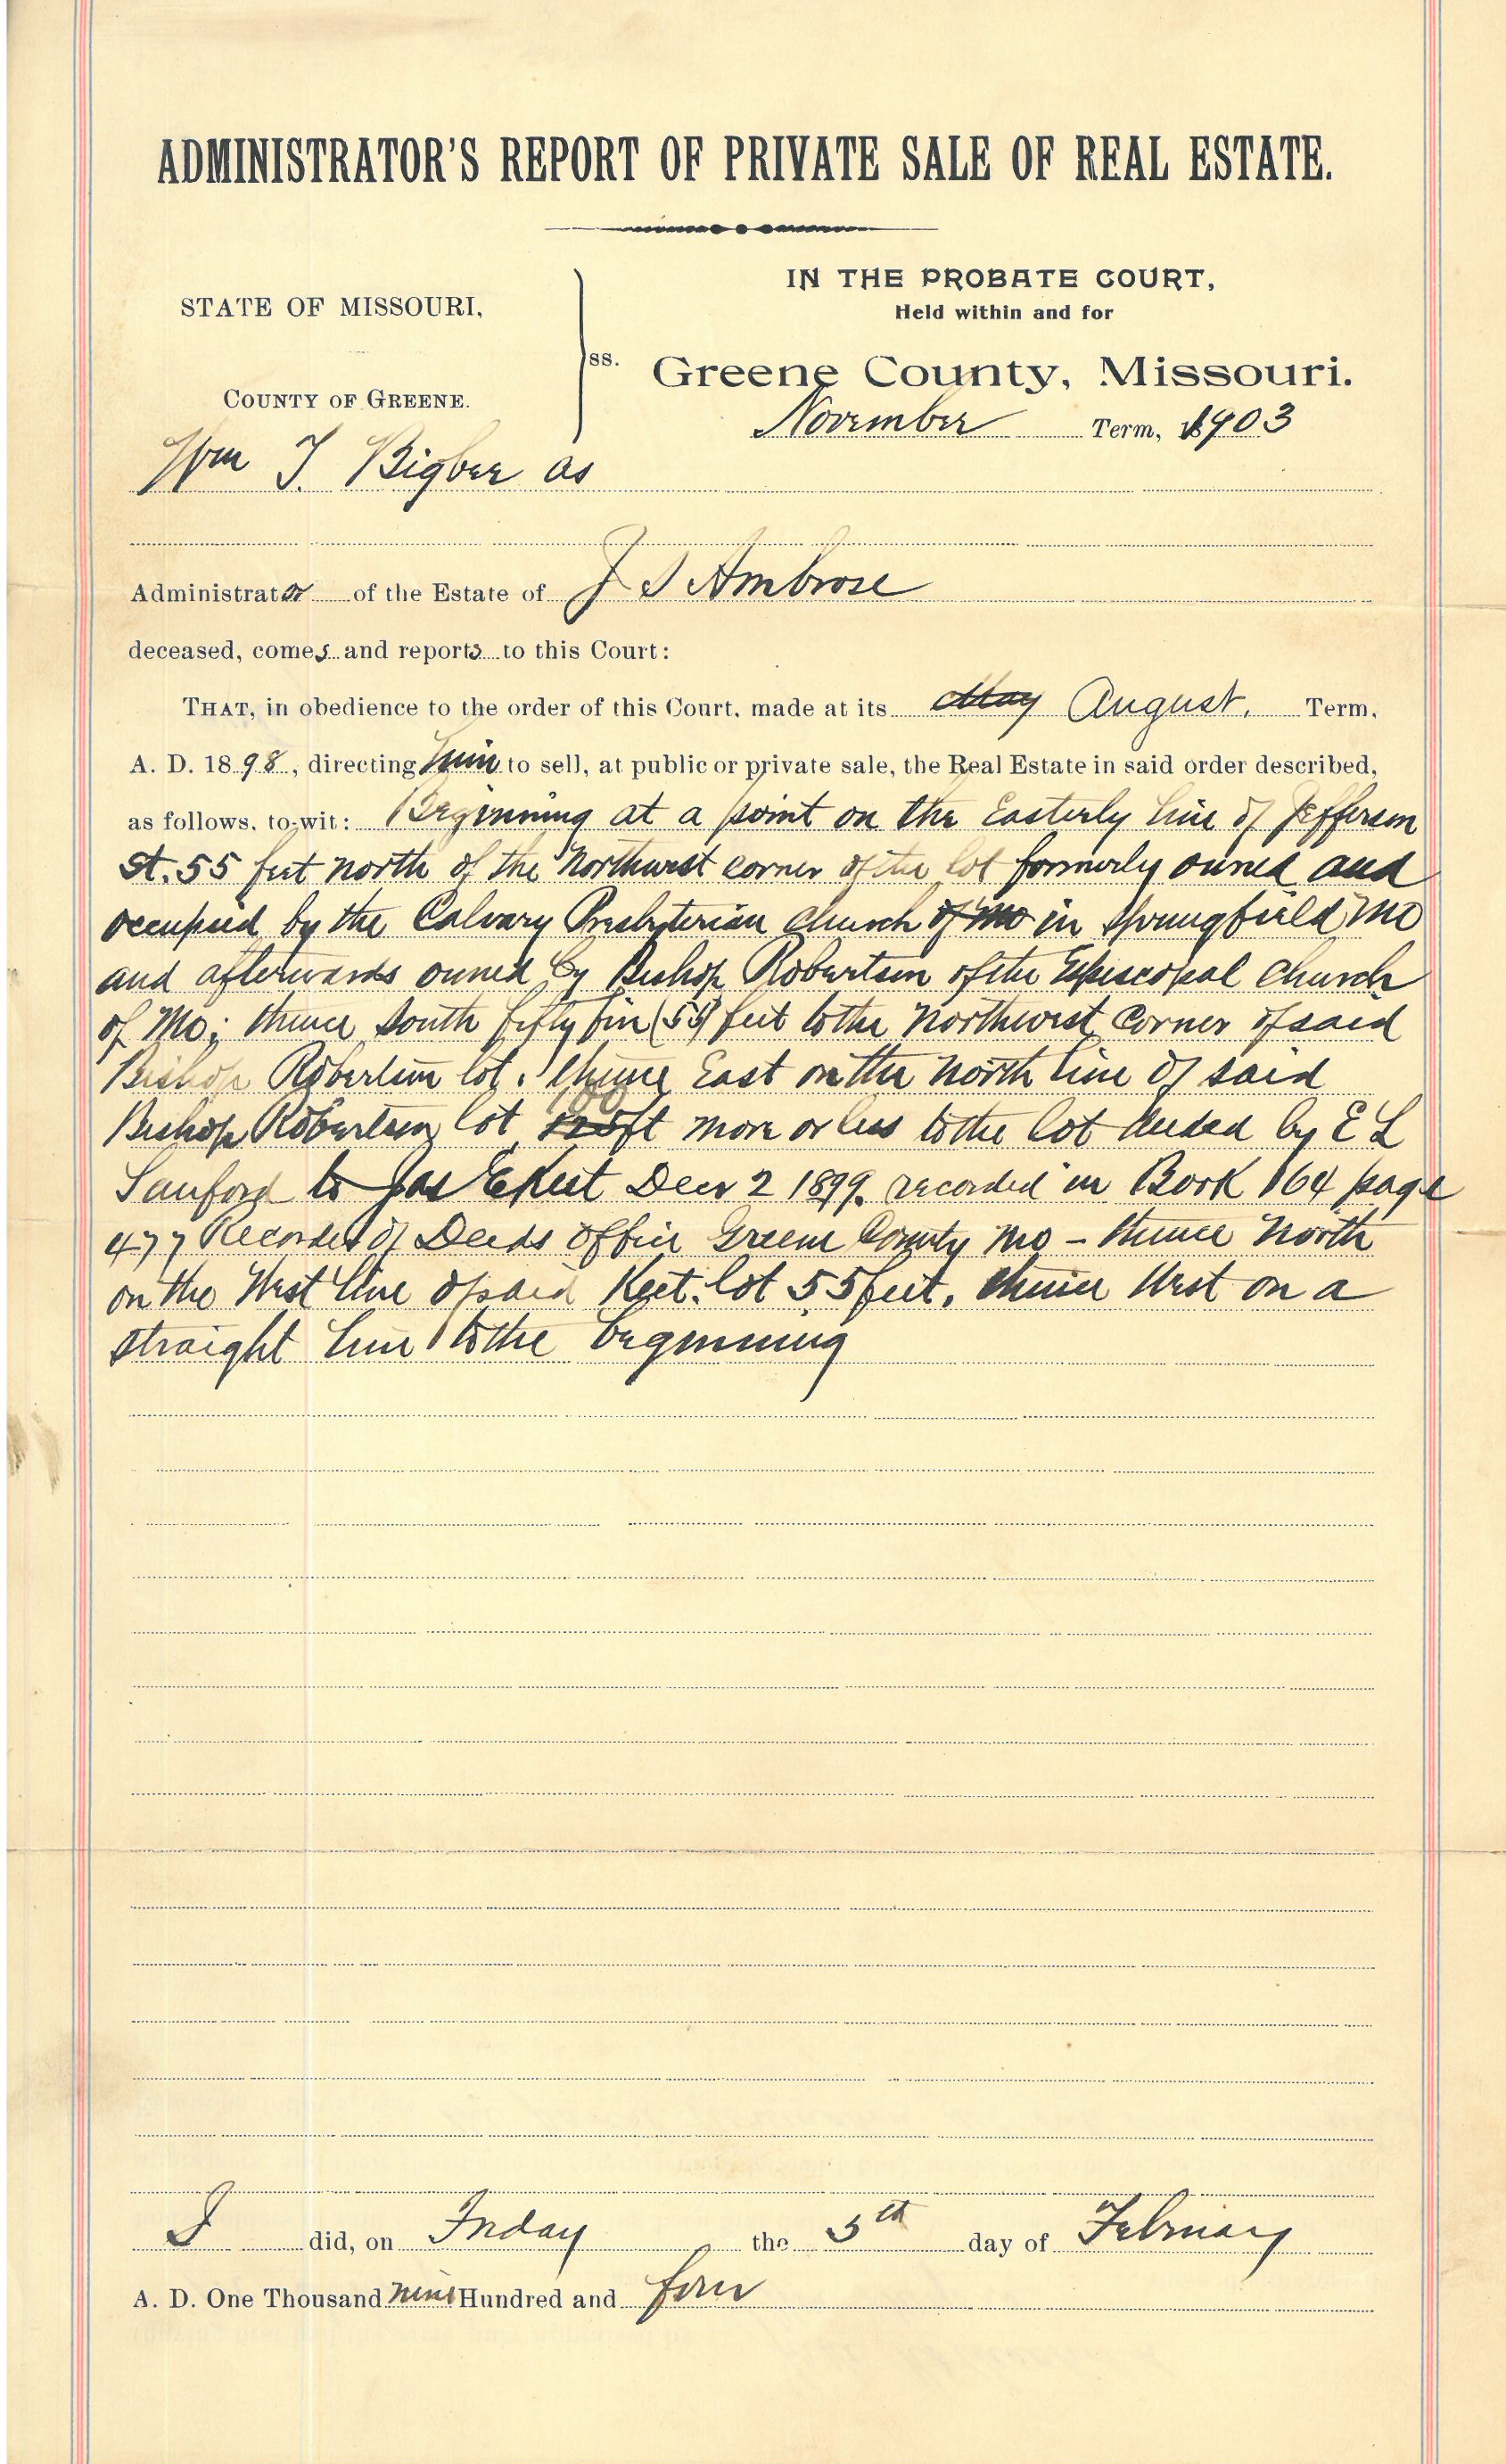 ADMINISTRATOR'S REPORT OF PRIVATE SALE OF REAL ESTATE.
STATE OF MISSOURI,
COUNTY OF GREENE.
ss.
IN THE PROBATE COURT,
Held within and for
Greene County, Missouri.
November Term, 1903
Wm T. Bigbee as
Administrator of the Estate of J S Ambrose
deceased, comes and reports to this Court:
THAT, in obedience to the order of this Court, made at its May August. Term,
A. D. 1898, directing him to sell, at public or private sale, the Real Estate in said order described,
as follows, to-wit: Beginning at a point on the Easterly line of Jefferson
St. 55 feet north of the Northwest corner of the lot formerly owned and
occupied by the Calvary Presbyterian Church of Mo in Springfield Mo
and afterwards owned by Bishop Robertson of the Episcopal Church
of Mo; thence South fifty five (55) feet to the Northwest Corner of said
Bishop Robertson lot. thence East on the north line of said
Bishop Robertson lot 100 125 ft more or less to the lot deeded by E L
Sanford to Jas E Keet Decr 2 1899. recorded in Book 164 page
477 Recorder of Deeds office Greene County Mo – thence North
on the West line of said Keet lot 55 feet, thence West on a
straight line to the beginning
I did, on Friday the 5th day of February
A. D. One Thousand nine Hundred and four